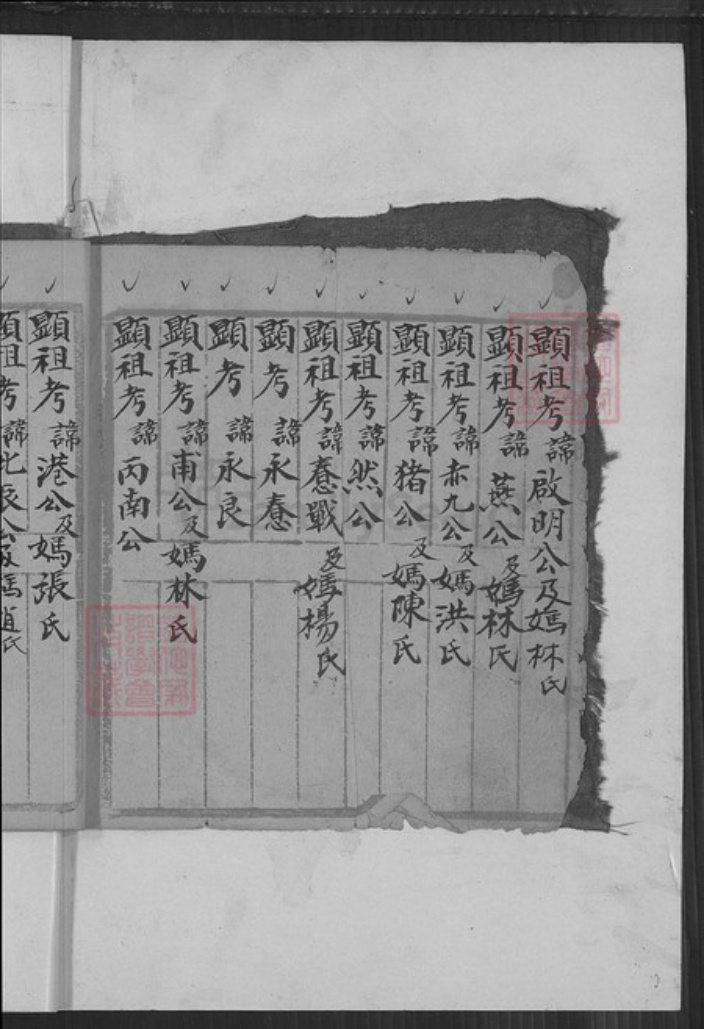 顯祖考諱啟明公及媽林氏
顯祖考諱燕公及媽林氏
顯祖考諱赤九公及媽洪氏
顯祖考諱猪公及媽陳氏
顯祖考諱然公
顯祖考諱憃戰及媽楊氏
顯考諱永憃
顯考諱永良
顯祖考諱甫公及媽林氏
顯祖考諱丙南公
顯祖考諱港公及媽張氏
顯祖考諱 公及媽 氏